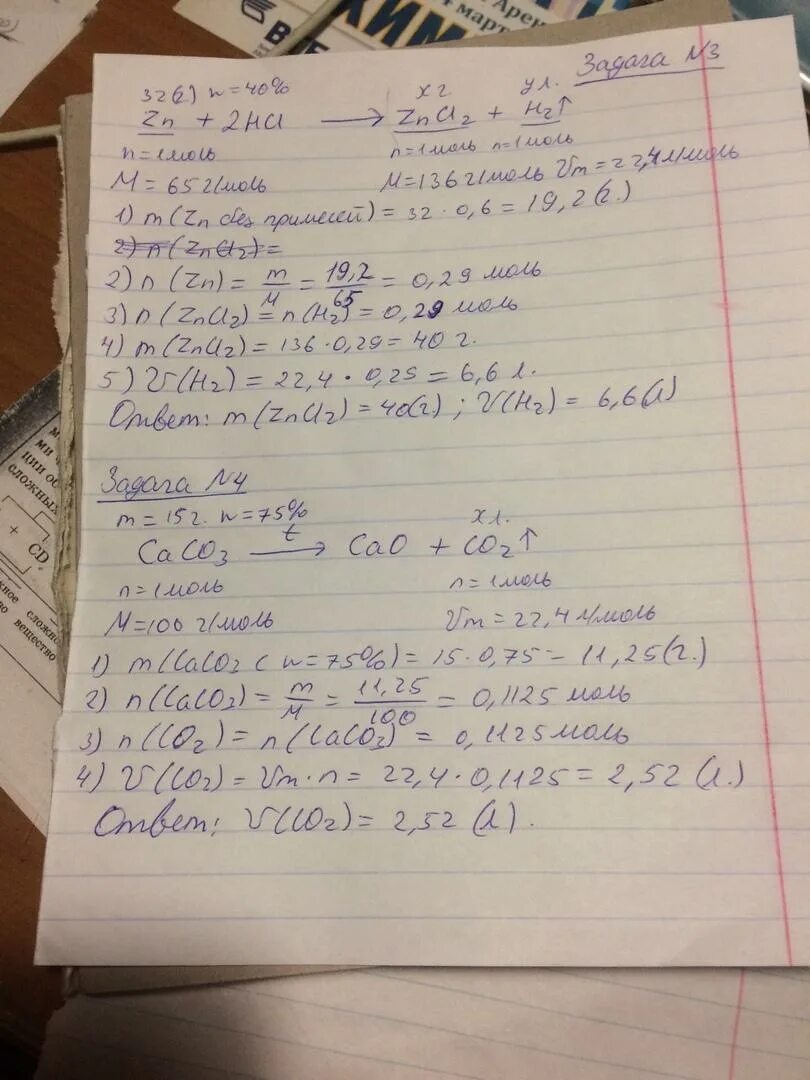 Арен
март
ХИМ
ВЕ
Задача №3
32(г) w=40% xг yл.
Zn + 2HCl ⟶ ZnCl₂ + H₂↑
n=1моль n=1моль n=1моль
M=65г/моль M=136г/моль Vm=22,4л/моль
1) m(Zn без примесей)=32·0,6=19,2(г.)
2) n(ZnCl₂)=
2) n(Zn)=m/M=19,2/65=0,29моль
3) n(ZnCl₂)=n(H₂)=0,29моль
4) m(ZnCl₂)=136·0,29=40г.
5) V(H₂)=22,4·0,29=6,6л.
Ответ: m(ZnCl₂)=40(г); V(H₂)=6,6(л)
Задача №4
m=15г. w=75% xл.
CaCO₃ ⟶ᵗ CaO + CO₂↑
n=1моль n=1моль
M=100г/моль Vm=22,4л/моль
1) m(CaCO₃ с w=75%)=15·0,75=11,25(г.)
2) n(CaCO₃)=m/M=11,25/100=0,1125моль
3) n(CO₂)=n(CaCO₃)=0,1125моль
4) V(CO₂)=Vm·n=22,4·0,1125=2,52(л.)
Ответ: V(CO₂)=2,52(л).
ми
ции об
сложных
+ CD
сложно
вещество